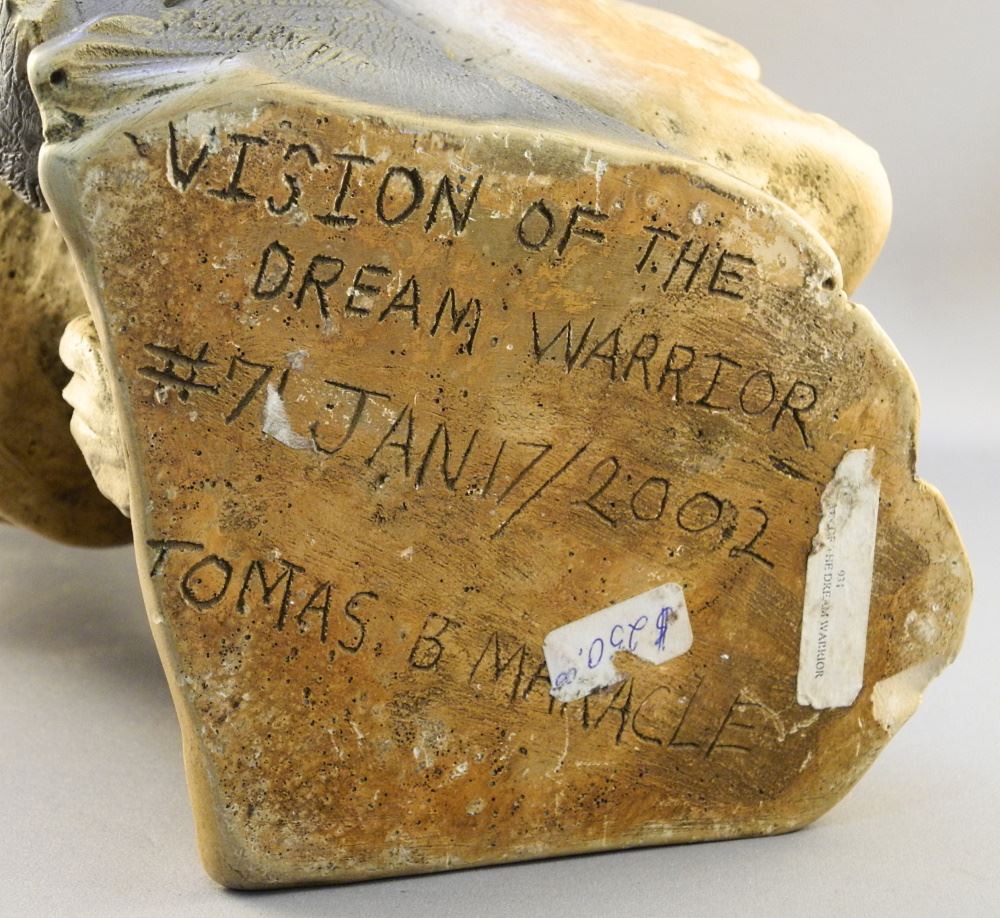 VISION OF THE
DREAM WARRIOR
#71 JAN 17/2002
TOMAS B MARACLE
$250.00
931
OF THE DREAM WARRIOR